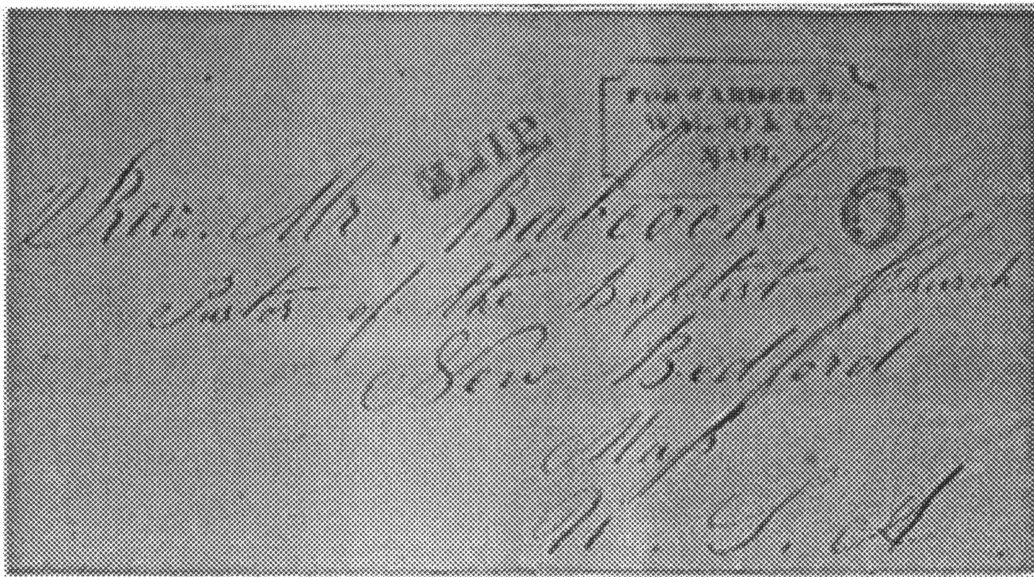 FORWARDED B
& CO
PAID
6
Rev. Mr. Babcock
Pastor of the Baptist Church
New Bedford
Mass
U. S. A.